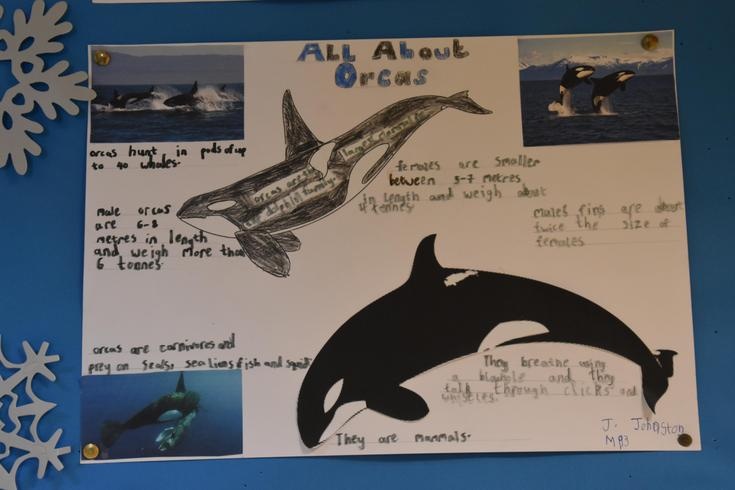 All About
Orcas
orcas hunt in pods of up
to 40 whales.
orcas are the
largest mammal in
the dolphin family.
females are smaller
between 5-7 metres
in length and weigh about
4 tonnes
male orcas
are 6-8
metres in length
and weigh more than
6 tonnes.
males fins are about
twice the size of
females
orcas are carnivores and
prey on seals, sea lions fish and squid
They breathe using
a blowhole and they
talk through clicks and
whistles.
They are mammals.
J. Johnston